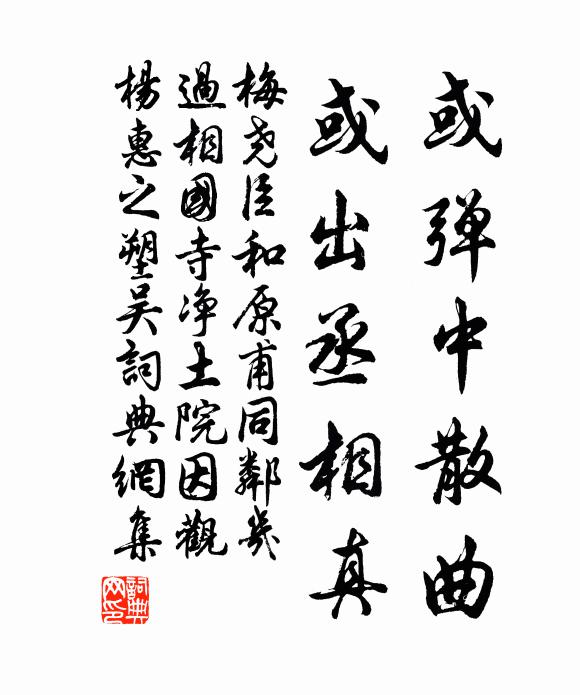 或弹中散曲
或出丞相真
梅尧臣和原甫同鄰幾
過相國寺净土院因觀
楊惠之塑吴詞典網集
詞典网印